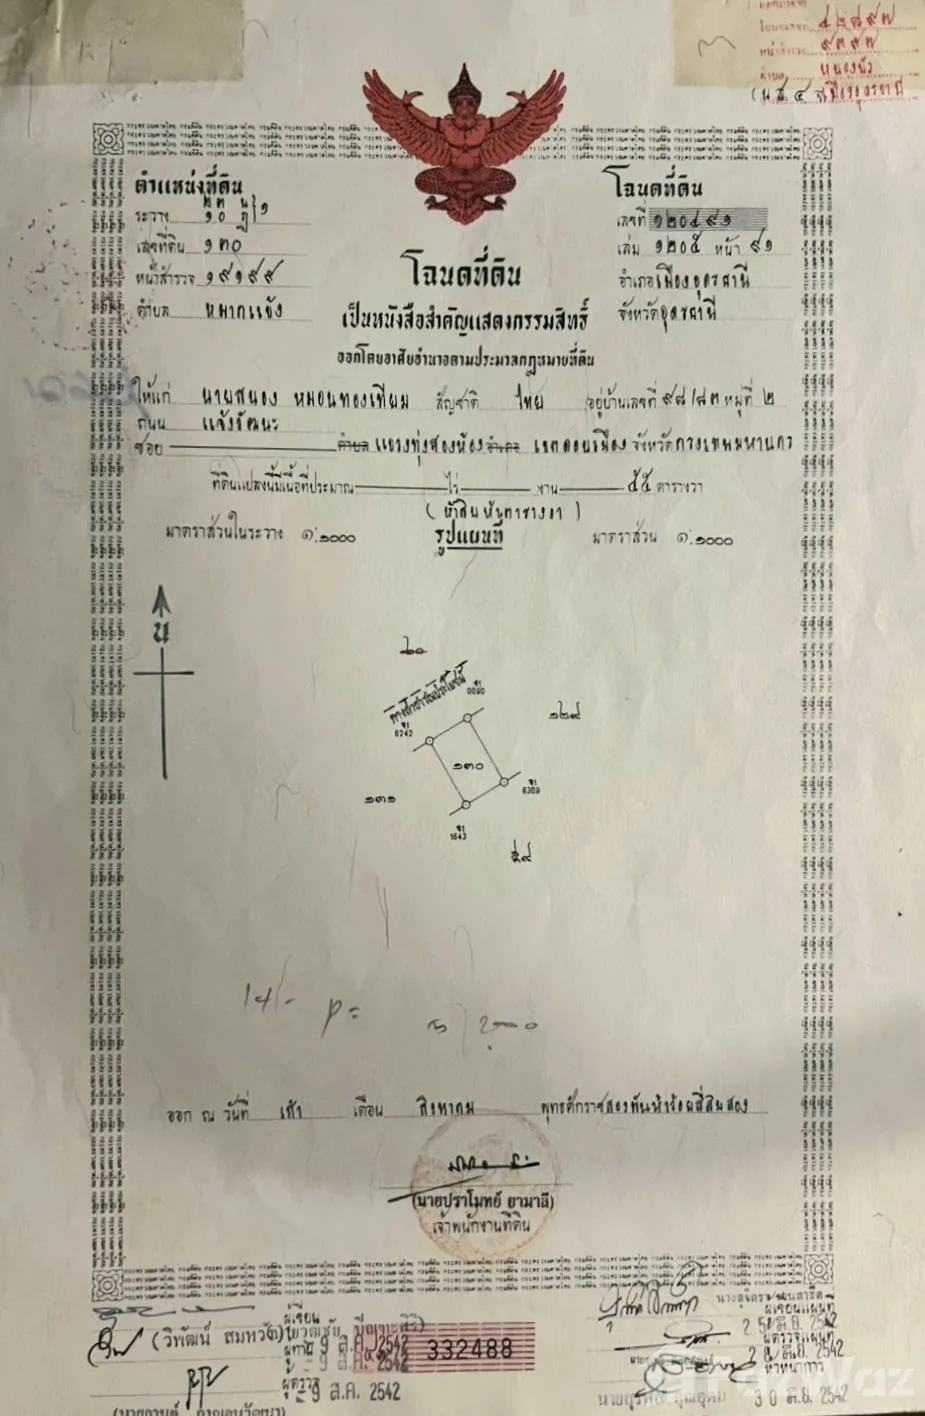 โฉนดเลขที่ ๔๒๘๙๗
หน้าสำรวจ ๙๓๙๗
ตำบล หนองบัว
(น.ส. ๔ จ) เมืองอุดรธานี
ตำแหน่งที่ดิน
ระวาง
เลขที่ดิน ๑๓๐
หน้าสำรวจ ๑๙๑๙๙
ตำบล หมากแข้ง
โฉนดที่ดิน
เลขที่ ๑๒๐๔๙๑
เล่ม ๑๒๐๕ หน้า ๙๑
อำเภอ เมืองอุดรธานี
จังหวัด อุดรธานี
โฉนดที่ดิน
เป็นหนังสือสำคัญแสดงกรรมสิทธิ์
ออกโดยอาศัยอำนาจตามประมวลกฎหมายที่ดิน
ให้แก่ นายสนอง หมอนทองเทียม สัญชาติ ไทย อยู่บ้านเลขที่ ๙๘/๘๓ หมู่ที่ ๒
ถนน แจ้งวัฒนะ
ซอย ตำบล แขวงทุ่งสองห้อง อำเภอ เขตดอนเมือง จังหวัด กรุงเทพมหานคร
ที่ดินแปลงนี้มีเนื้อที่ประมาณ ไร่ งาน ๕๕ ตารางวา
(ห้าสิบห้าตารางวา)
มาตราส่วนในระวาง ๑:๑๐๐๐ รูปแผนที่ มาตราส่วน ๑:๑๐๐๐
น
๖๐
ทางสาธารณประโยชน์
0090
6242
๑๒๙
๑๓๐
๑๓๑
6309
1643
๕๙
ออก ณ วันที่ เก้า เดือน สิงหาคม พุทธศักราชสองพันห้าร้อยสี่สิบสอง
(นายปราโมทย์ ยามาลี)
เจ้าพนักงานที่ดิน
ผู้เขียน
(วิพัฒน์ สมหวัง)
ผู้ทาน 9 ส.ค. 2542
332488
ผู้ตรวจ 9 ส.ค. 2542
ผู้เขียนแผนที่
ผู้ตรวจแผนที่
หัวหน้าการ
3 0 มิ.ย. 2542
FazWaz